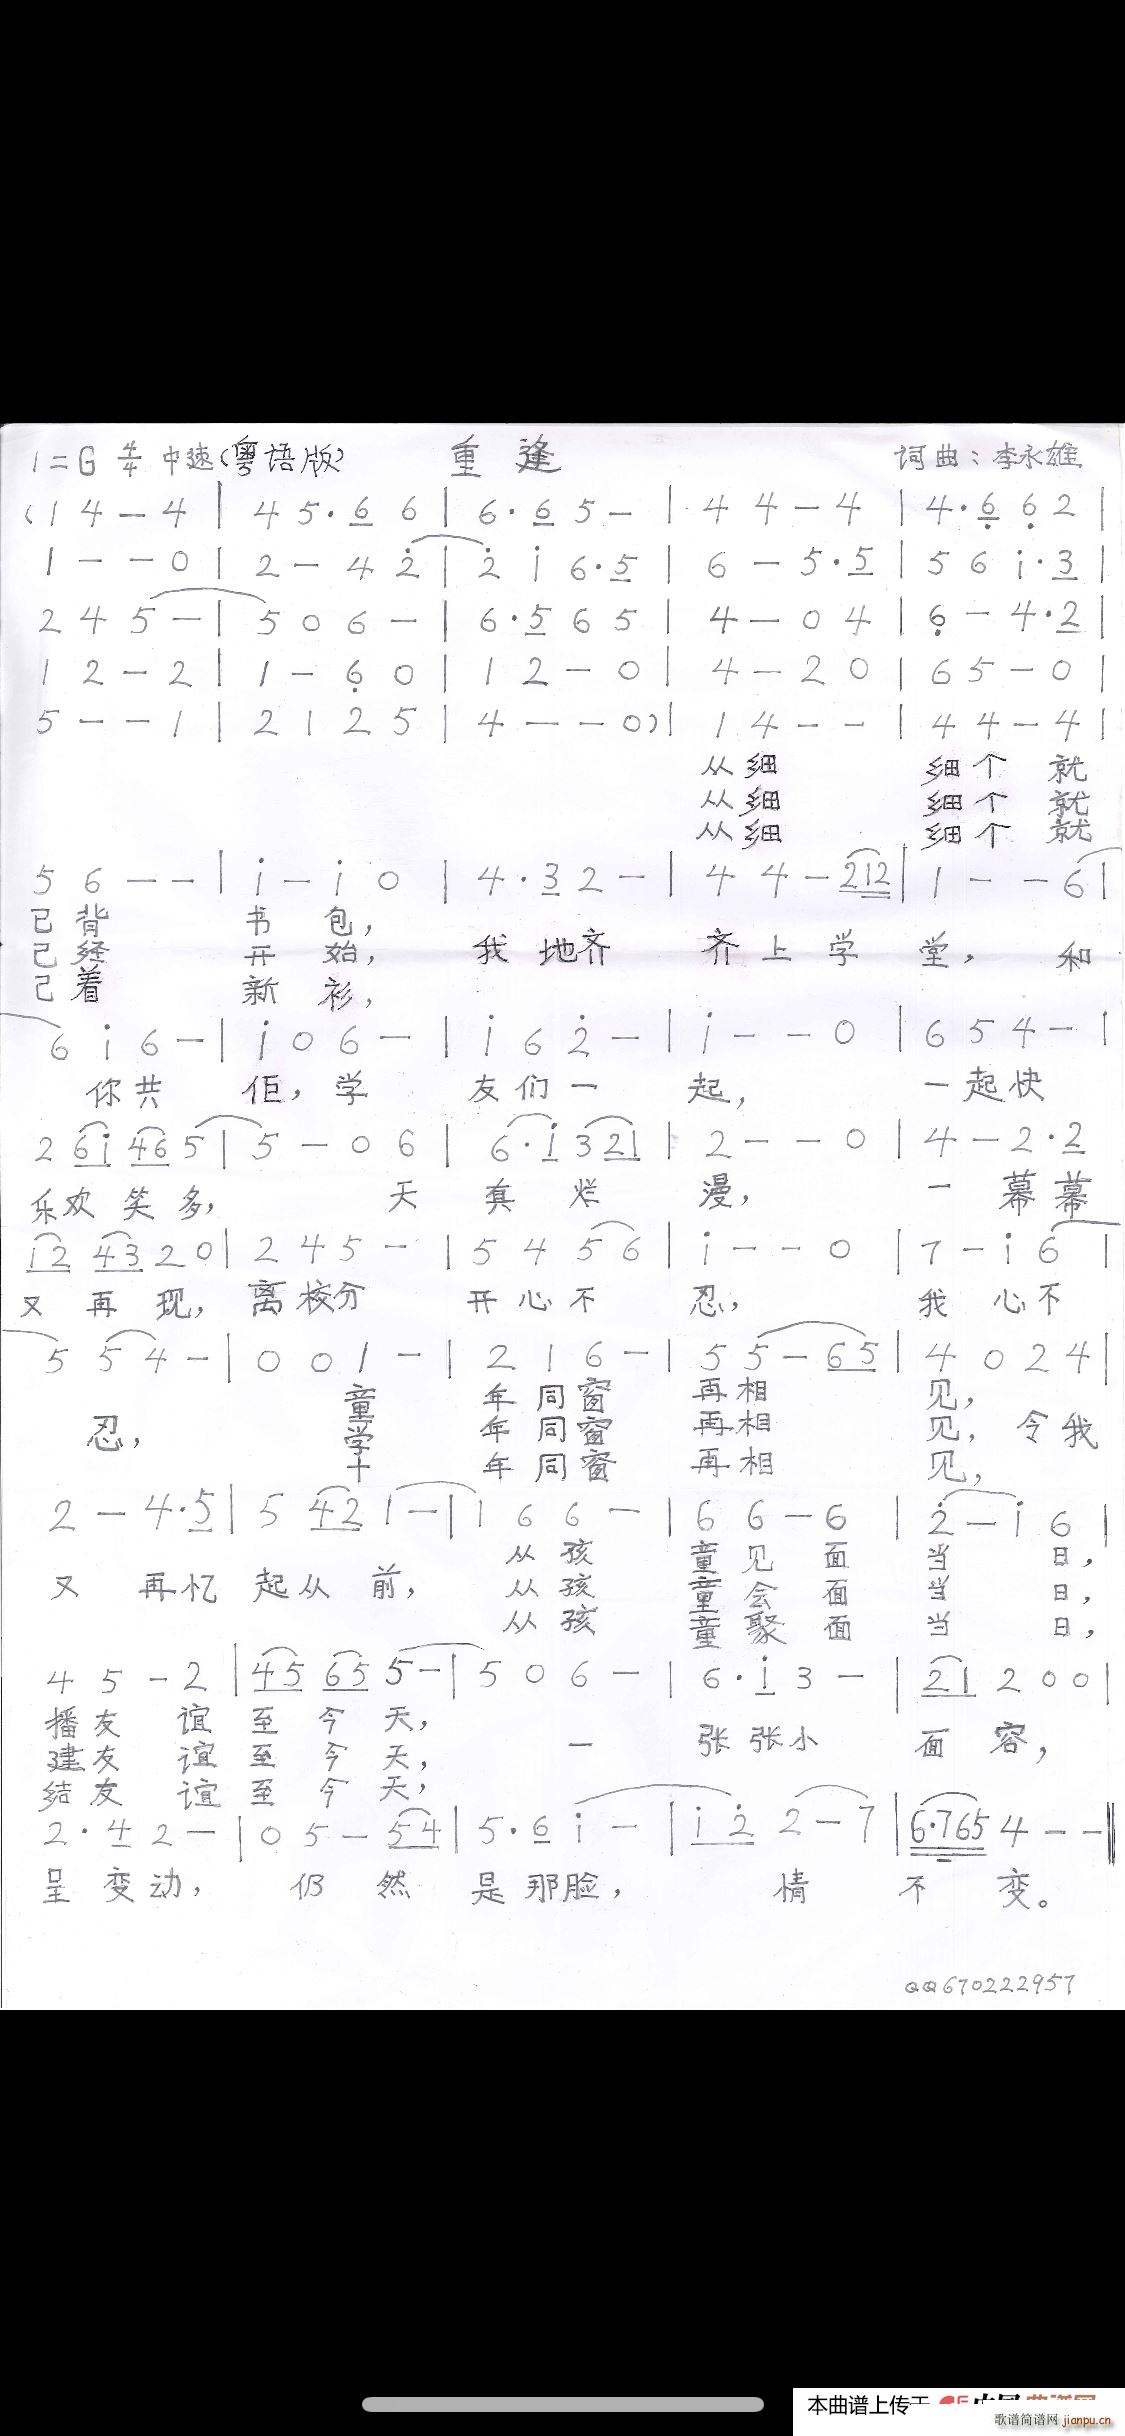 1=G 4/4 中速(粤语版) 重逢 词曲:李永雄
(1 4 — 4 | 4 5 · 6 6 | 6 · 6 5 — | 4 4 — 4 | 4 · 6 6 2 |
1 — — 0 | 2 — 4 2 | 2 1 6 · 5 | 6 — 5 · 5 | 5 6 1 · 3 |
2 4 5 — | 5 0 6 — | 6 · 5 6 5 | 4 — 0 4 | 6 — 4 · 2 |
1 2 — 2 | 1 — 6 0 | 1 2 — 0 | 4 — 2 0 | 6 5 — 0 |
5 — — 1 | 2 1 2 5 | 4 — — 0) | 1 4 — — | 4 4 — 4 |
从细 细个 就
从细 细个 就
从细 细个 就
5 6 — — | 1 — 1 0 | 4 · 3 2 — | 4 4 — 212 | 1 — — 6 |
已背 书包,
已经 开始, 我地齐 齐上学 堂, 和
已着 新衫,
6 1 6 — | 1 0 6 — | 1 6 2 — | 1 — — 0 | 6 5 4 — |
你共 佢,学 友们一 起, 一起快
2 61 46 5 | 5 — 0 6 | 6 · 1 3 21 | 2 — — 0 | 4 — 2 · 2
乐欢笑多, 天 真烂 漫, 一 幕幕
12 43 2 0 | 2 4 5 — | 5 4 5 6 | 1 — — 0 | 7 — 1 6 |
又再现, 离校分 开心不 忍, 我 心不
5 5 4 — | 0 0 1 — | 2 1 6 — | 5 5 — 65 | 4 0 2 4 |
童 年同窗 再相 见,
忍, 学 年同窗 再相 见, 令我
十 年同窗 再相 见,
2 — 4 · 5 | 5 42 1 — | 1 6 6 — | 6 6 — 6 | 2 — 1 6 |
从孩 童见面 当 日,
又 再忆 起从前, 从孩 童会面 当 日,
从孩 童聚面 当 日,
4 5 — 2 | 45 65 5 — | 5 0 6 — | 6 · 1 3 — | 21 2 0 0 |
播友 谊 至今天,
建友 谊 至今天, 一 张张小 面容,
结友 谊 至今天,
2 · 4 2 — | 0 5 — 54 | 5 · 6 1 — | 12 2 — 7 | 6·765 4 — — ‖
呈变动, 仍 然 是那脸, 情 不变。
QQ670222957
本曲谱上传于
歌谱简谱网 jianpu.cn